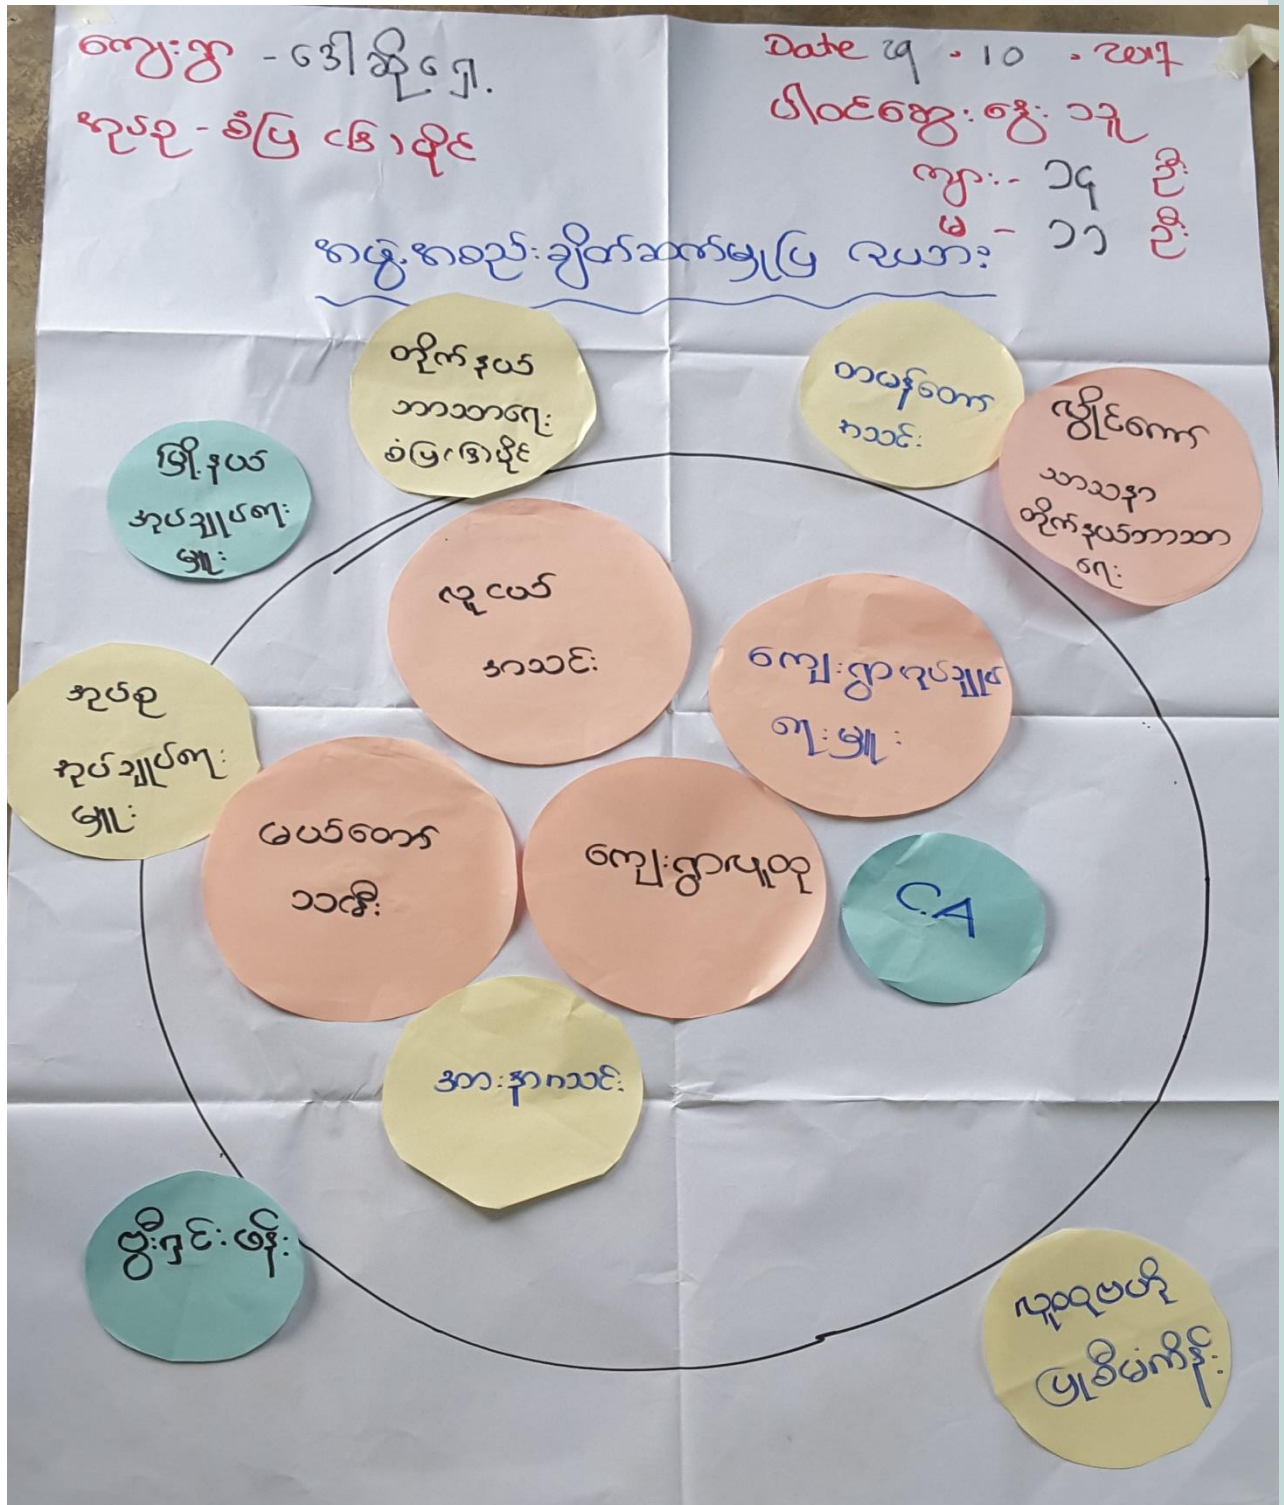 ကျေးရွာ - ဒေါ်ဆိုရှေ့.
Date ၃၅ . 10 . ၂၀၁၇
အုပ်စု - စံပြ (၆) မိုင်
ပါဝင်ဆွေးနွေးသူ
ကျား - ၁၄ ဦး
မ - ၁၁ ဦး
အဖွဲ့အစည်းချိတ်ဆက်မှုပြ ဇယား
တိုက်နယ်
ဘာသာရေး
စံပြ(၆)မိုင်
တမန်တော်
အသင်း
လွိုင်ကော်
သာသနာ
တိုက်နယ်ဘာသာ
ရေး
မြို့နယ်
အုပ်ချုပ်ရေး
မှူး
လူငယ်
အသင်း
ကျေးရွာအုပ်ချုပ်
ရေးမှူး
အုပ်စု
အုပ်ချုပ်ရေး
မှူး
မယ်တော်
သတ္တီး
ကျေးရွာလူထု
C.A
အားနာအသင်း
ဗွီးရှင်းဖန်း
လူထုဗဟို
ပြုစီမံကိန်း